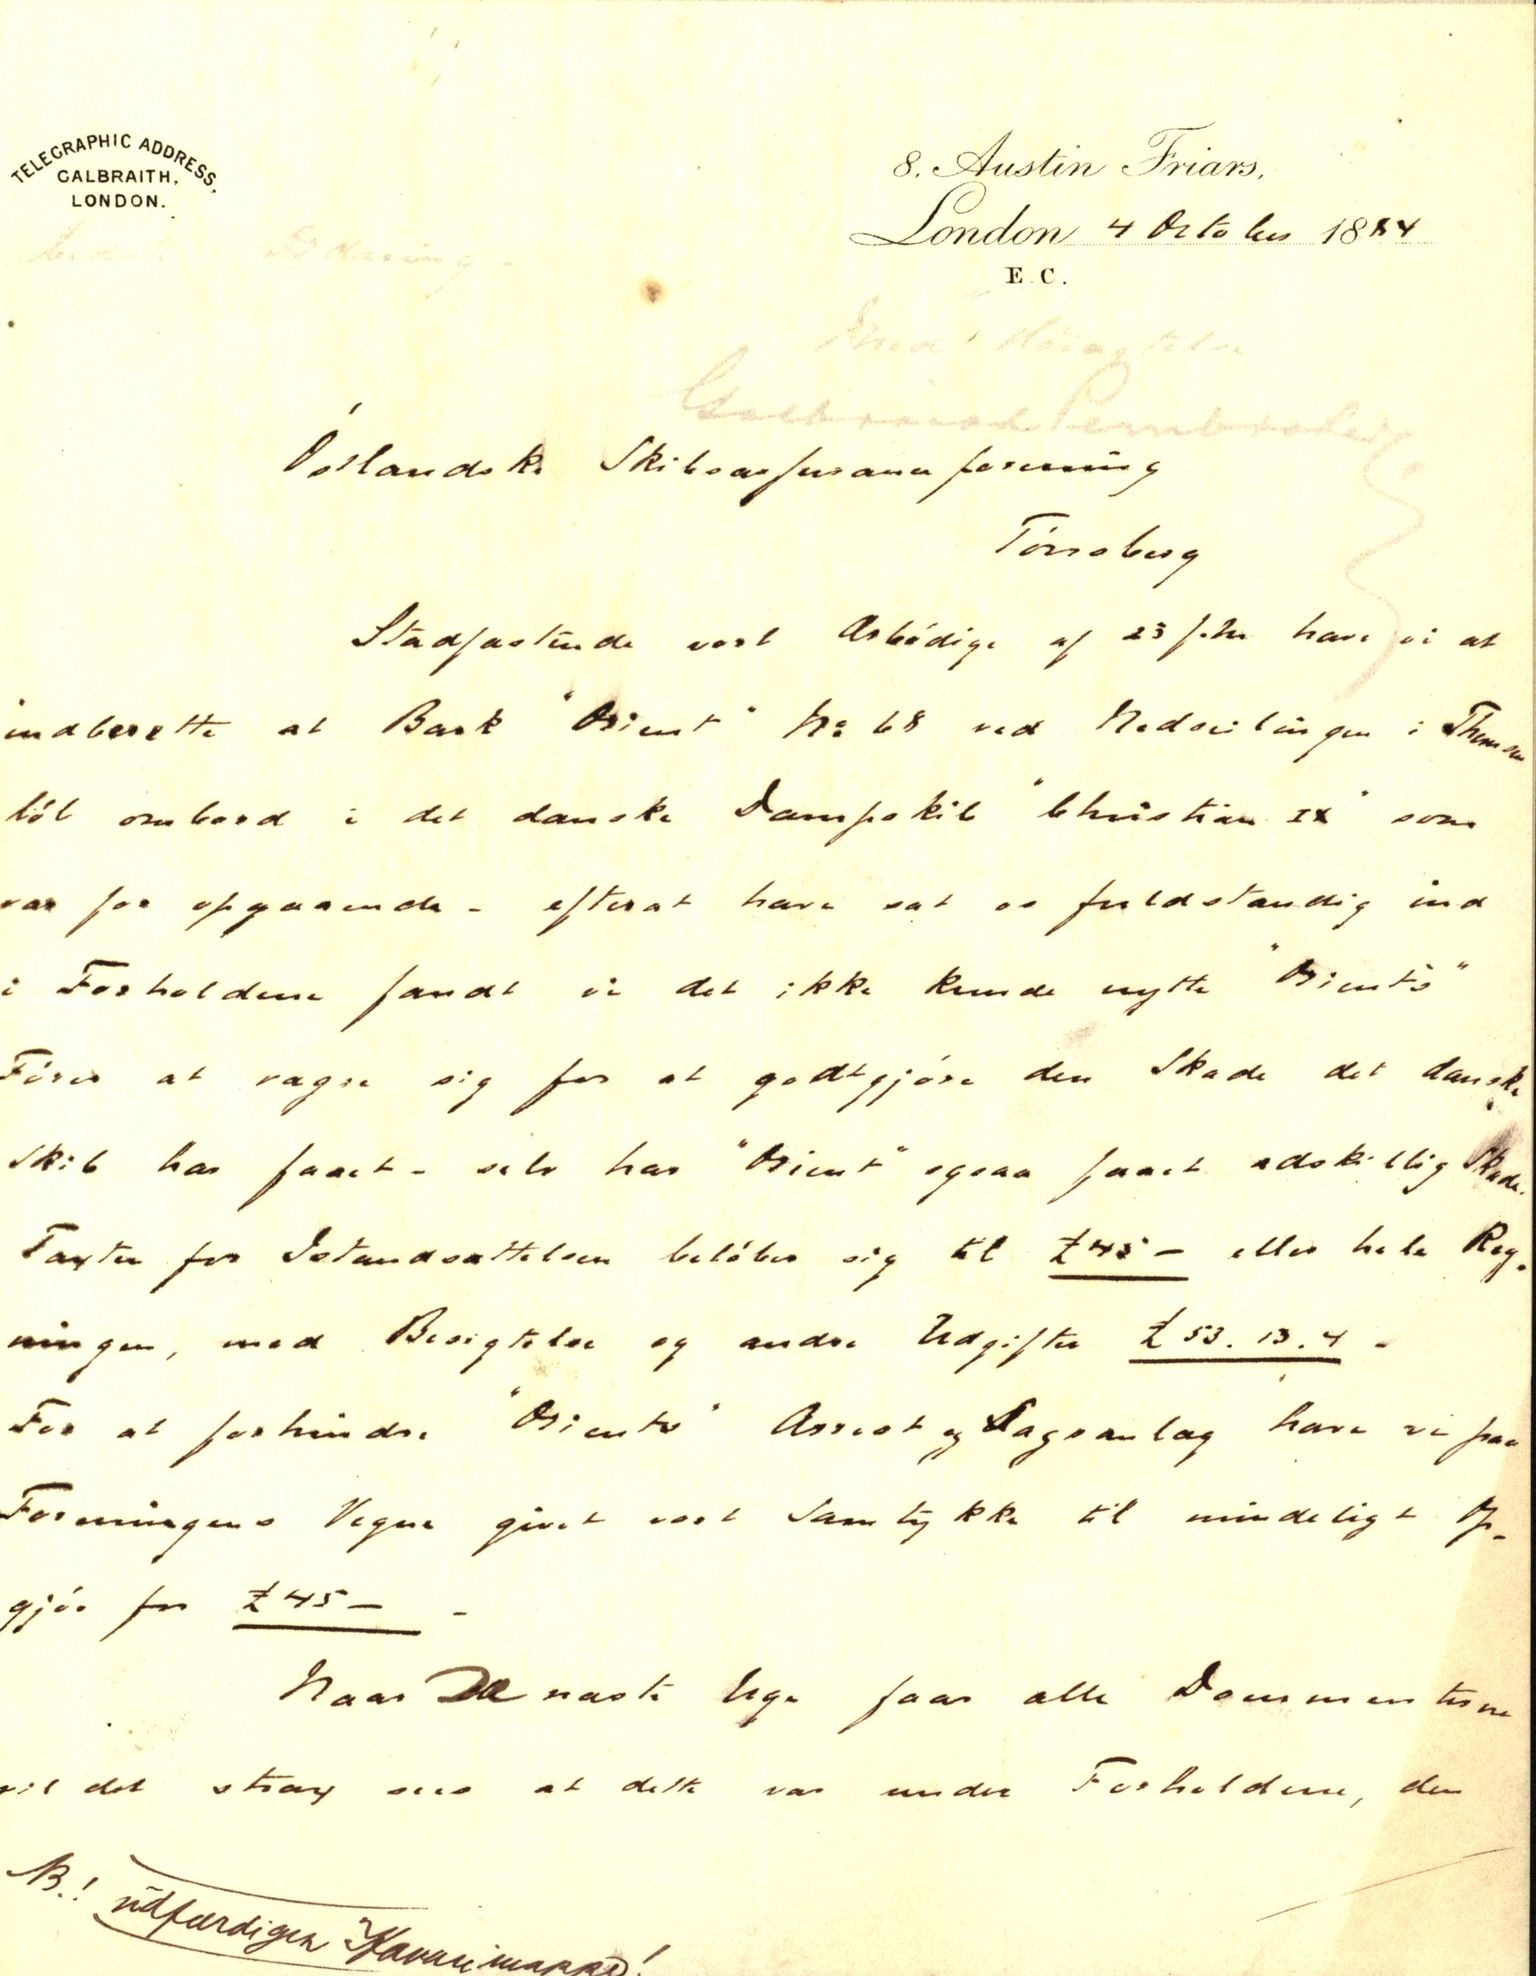 TELEGRAPHIC ADDRESS,
GALBRAITH,
LONDON.
8. Austin Friars,
London 4 October 1884
E.C.
Östlandske Skibsassuranceforening
Tönsberg
Stadfæstende vort Ærbödige af 23 f.m. have vi at
indberette at Bark "Orient" No 68 ved Nedseilingen i Themsen
löb ombord i det danske Dampskib "Christian IX" som
var for opgaaende - efterat have sat os fuldstændig ind
i Forholdene fandt vi det ikke kunde nytte "Orients"
Förer at vægre sig for at godtgjöre den Skade det danske
Skib har faaet - selv har "Orient" ogsaa faaet adskillig Skade.
Taxten for Istandsættelsen belöber sig til £45 - eller hele Reg-
ningen, med Besigtelse og andre Udgifter £53.13.4 -
For at forhindre "Orients" Arrest og Sagsanlæg have vi paa
Foreningens Vegne givet vort Samtykke til mindeligt Op-
gjör for £45 - -
Naar De næste Uge faar alle Documenterne
vil det strax sees at dette var under Forholdene, den
NB.! udfærdigen Havarimappe!